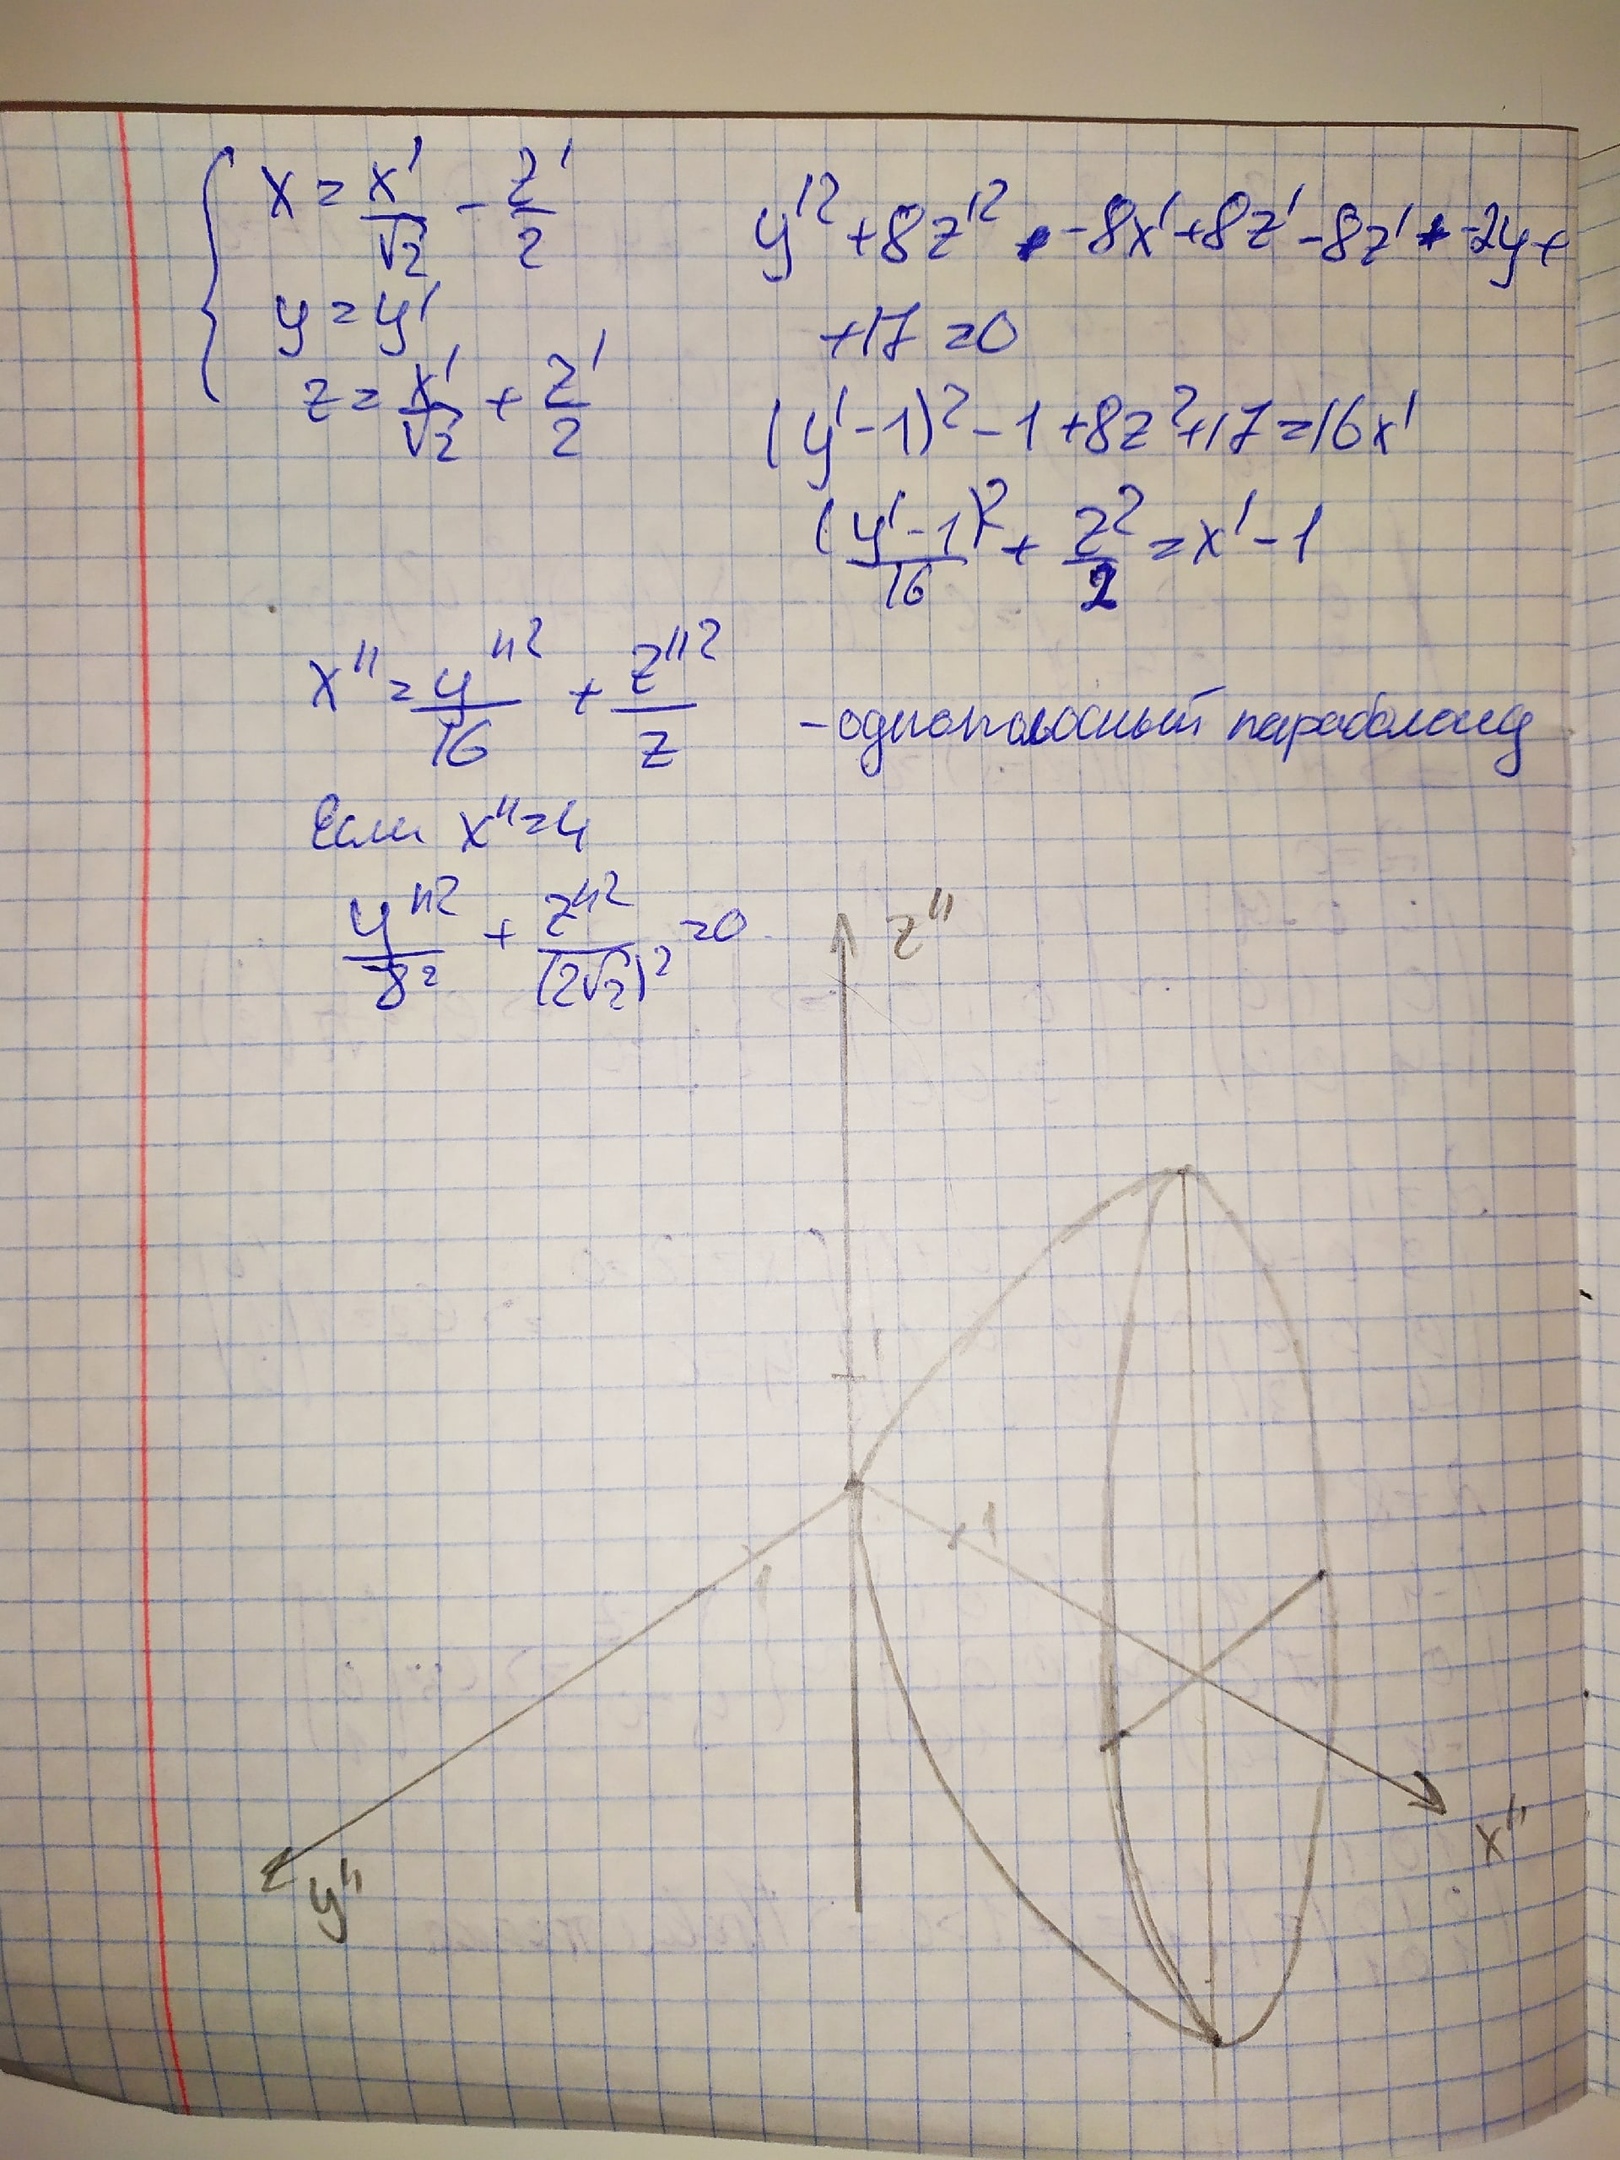 x = x'/√2 - z'/2
y = y'
z = x'/√2 + z'/2
y'² + 8z'² - 8x' + 8z' - 8z' - 2y +
+17 = 0
(y' - 1)² - 1 + 8z² + 17 = 16x'
(y' - 1)²/16 + z²/2 = x' - 1
x'' = y''²/16 + z''²/z - однополосный параболоид
Если x'' = 4
y''²/8² + z''²/(2√2)² = 0
z''
1
1
1
x''
y''